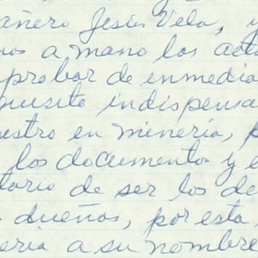 añero Jesús Vela, y
nos a mano los act
probar de inmedia
quisito indispensa
estro en minería, p
los documento y e
tario de ser los de
s dueños, por esta
ería a su nombre